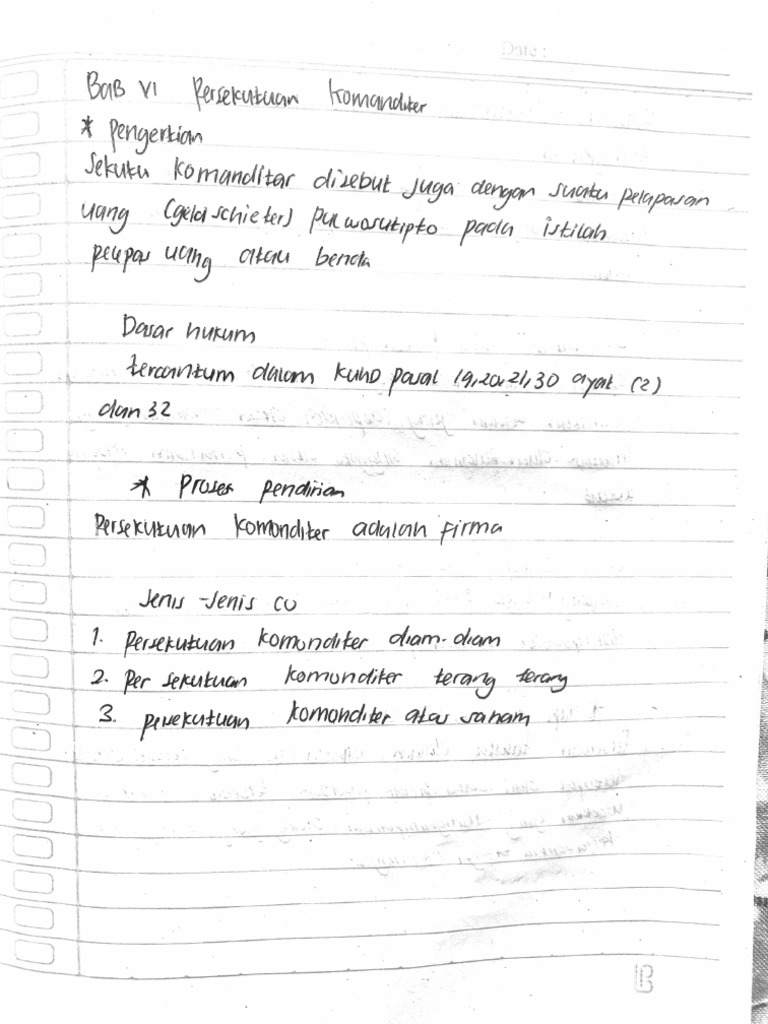 Date :
BAB VI Persekutuan Komanditer
* Pengertian
Sekutu Komanditar disebut juga dengan suatu pelapasan
uang (geldschieter) purwosutipto pada istilah
pelepas uang atau benda
Dasar hukum
tercantum dalam KUHD pasal 19,20,21,30 ayat (2)
dan 32
* Proses pendirian
Persekutuan Komonditer adalah firma
Jenis-Jenis CV
1. Persekutuan Komonditer diam-diam
2. Per sekutuan Komonditer terang terang
3. persekutuan Komonditer atas saham